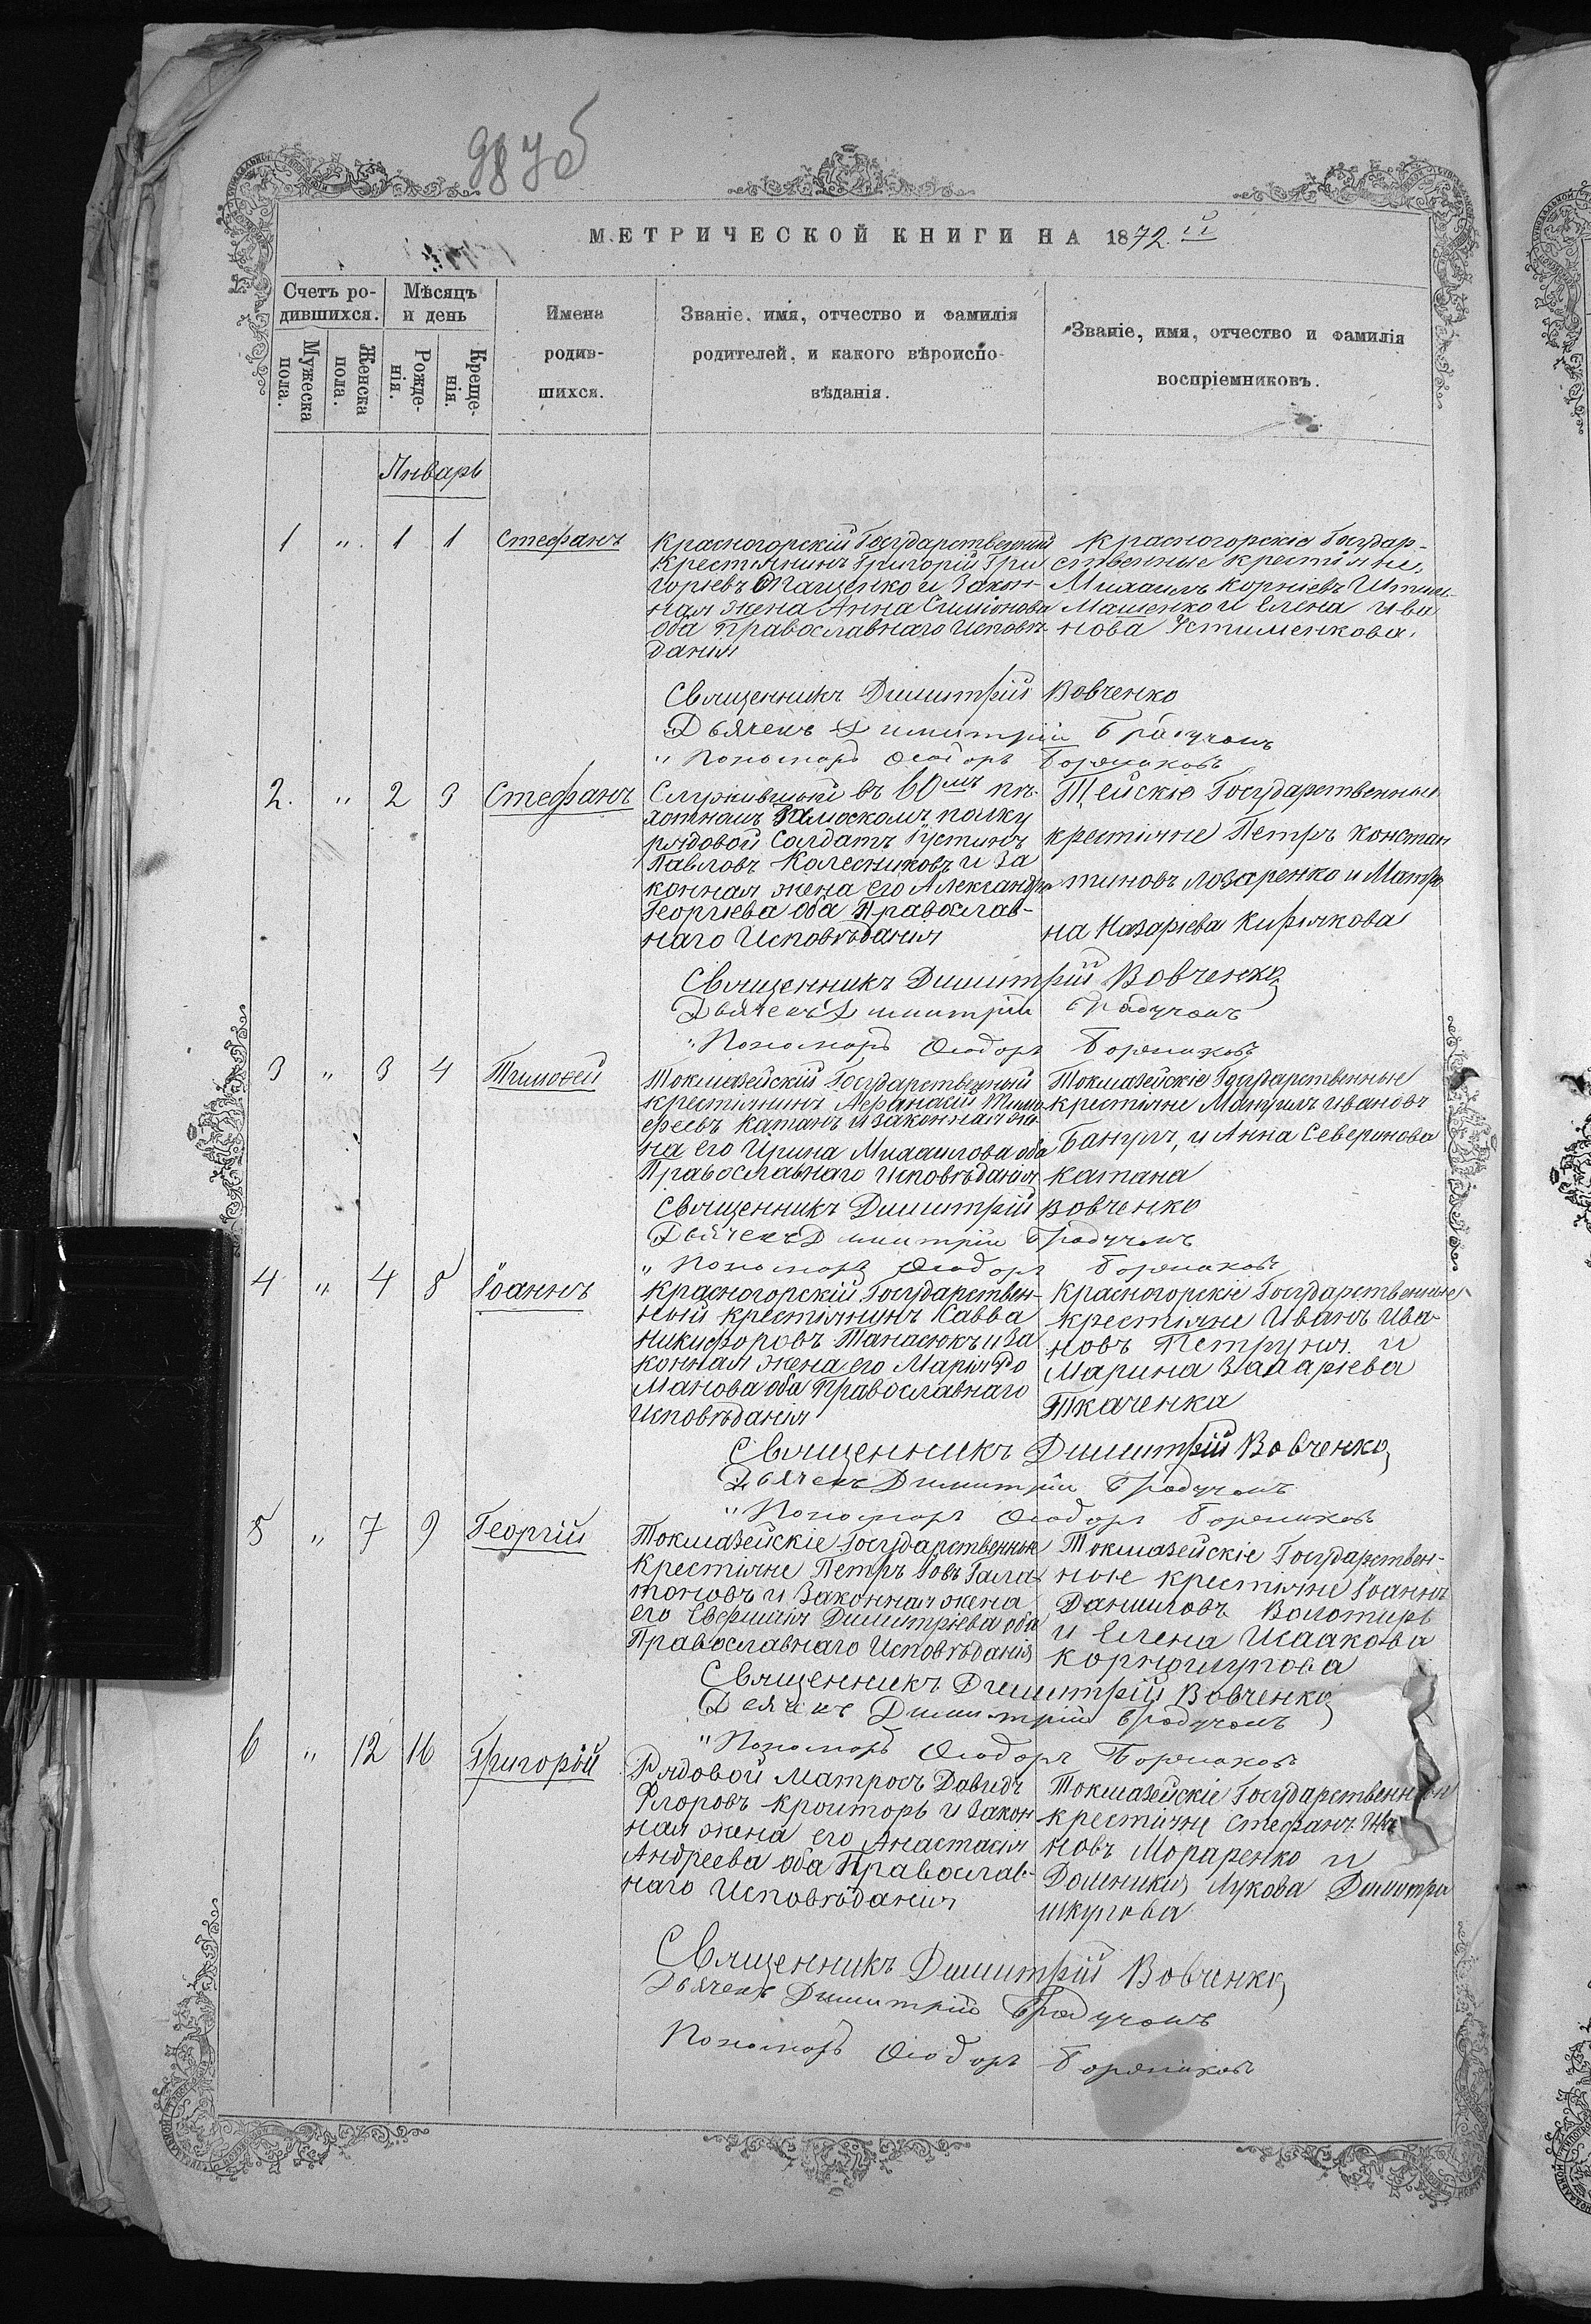 987об
МЕТРИЧЕСКОЙ КНИГИ НА 1872.й
Счетъ ро-
дившихся.
Мѣсяцъ
и день
Мужеска
пола.
Женска
пола.
Рожде-
нія.
Креще-
нія.
Имена
родив-
шихся.
Званіе, имя, отчество и фамилія
родителей, и какого вѣроиспо-
вѣданія.
Званіе, имя, отчество и фамилія
воспріемниковъ.
Январь
1 " 1 1 Стефанъ
Красногорскій Государственный
Крестянинъ Григорій Гри
горіевъ Пащенко и Закон-
ная жена Анна Симіонова
оба Православнаго Исповѣ-
данія
Красногорскіе Государ-
ственные крестяне,
Михаилъ Корніевъ
Машенко и Елена Ива
нова Устименкова.
Священникъ Димитрій Вовченко
Дьячекъ Димитрій
" Пономарь Ѳеодоръ
2. " 2 3 Стефанъ
Служившый въ 60мъ пѣ-
хотномъ Замоскомъ полку
рядовой Солдатъ Іустинъ
Павловъ Колесниковъ и За
конная жена его Александра
Георгіева оба Православ-
наго Исповѣданія
Тейскіе Государственные
крестяне Петръ Констан
тиновъ Лозаренко и Матро
на Назаріева Кирякова
Священникъ Димитрій Вовченко
Дьячекъ Димитрій
" Пономарь Ѳеодоръ
3 " 3 4 Тимоѳей
Токмазейскій Государственный
крестянинъ Аѳанасій Тимо
ѳеевъ Катанъ и законная же-
на его Ирина Михаилова оба
Православнаго Исповѣданія
Токмазейскіе Государственные
крестяне Мануилъ Ивановъ
и Анна Северинова
Катана
Священникъ Димитрій Вовченко
Дьячекъ Димитрій
" Пономарь Ѳеодоръ
4 " 4 8 Іоаннъ
Красногорскій Государствен-
ный крестянинъ Савва
Никифоровъ Танасюкъ и За
конная жена его Марія Ро
манова оба Православнаго
Исповѣданія
Красногорскіе Государственные
крестяне Иванъ Ива
новъ Петруня и
Марина Захаріева
Ткаченка
Священникъ Димитрій Вовченко
Дьячекъ Димитрій
" Пономарь Ѳеодоръ
5 " 7 9 Георгій
Токмазейскіе Государственные
Крестяне Петръ Іовъ Гала
тоновъ и Законная жена
его Евфимія Димитріева оба
Православнаго Исповѣданія
Токмазейскіе Государствен-
ные крестяне Іоаннъ
Даниловъ Волотиръ
и Елена Исаакова
Священникъ Димитрій Вовченко
Дьячекъ Димитрій
" Пономарь Ѳеодоръ
6 " 12 16 Григорій
Рядовой Матросъ Давидъ
Флоровъ Кроиторъ и Закон
ная жена его Анастасія
Андреева оба Православ-
наго Исповѣданія
Токмазейскіе Государственные
крестяне Стефанъ Ива
новъ Мораренко и
Доменикія Лукова Димитра
шкунова
Священникъ Димитрій Вовченко
Дьячекъ Димитрій
Пономарь Ѳеодоръ